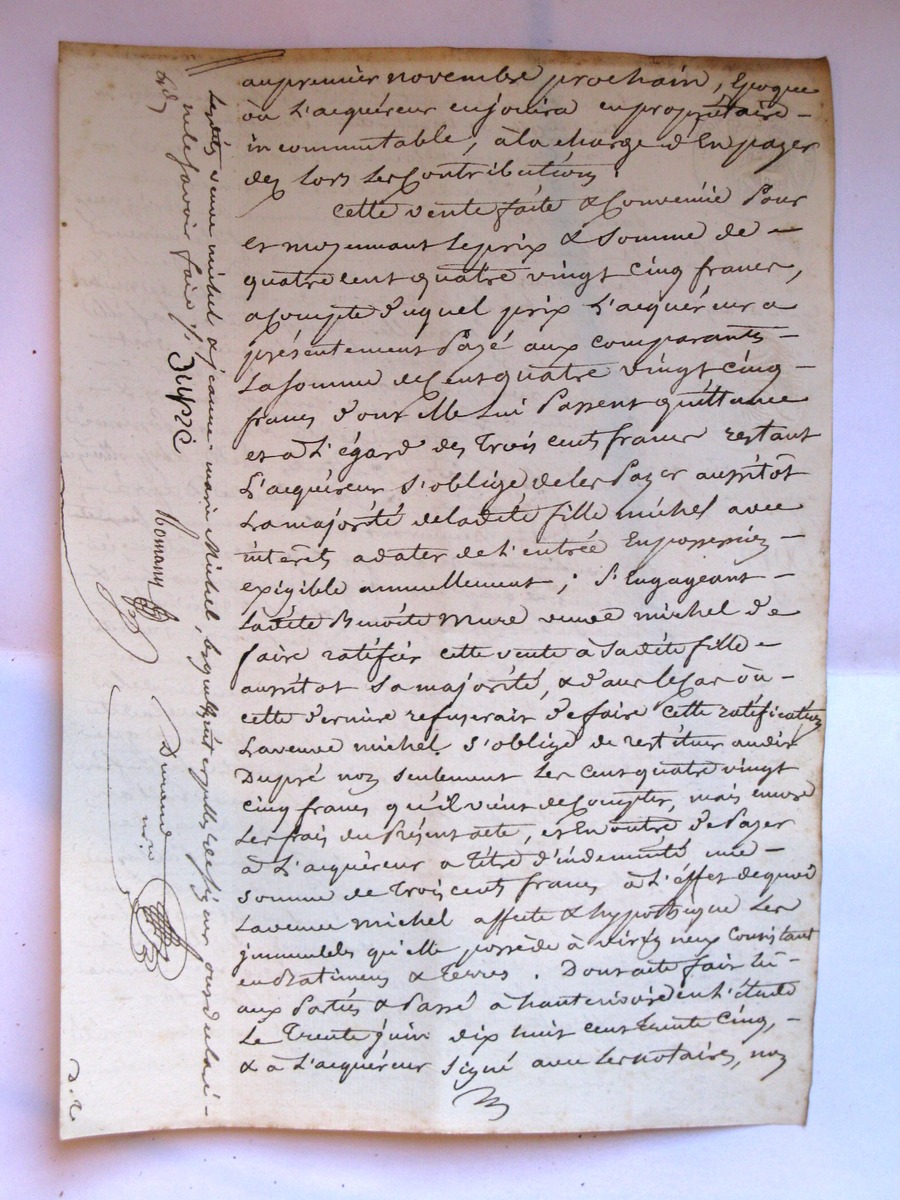 au premier novembre prochain, Epoque
où L'acquéreur en jouira en propriétaire —
incommutable, à la charge d'En payer
des Lors Les Contributions.
Cette vente faite & Convenüe Pour
et moyennant le prix & Somme de —
quatre cent quatre vingt cinq francs,
acompte duquel prix L'acquéreur a
présentement Payé aux comparants —
La Somme de Cent quatre vingt cinq —
francs dont elle lui Passent quittance
et à L'égard des Trois cents francs restant
L'acquéreur S'oblige de les Payer aussitôt
La majorité de ladite fille michel avec
intérêts a dater de l'entrée En possession —
exigible annuellement ; S'Engageant —
Ladite Benoite Mure veuve michel de
faire ratifier cette vente à Sadite fille —
aussitot Sa majorité, & dans le Cas où —
cette dernière refuserait de faire cette ratification
La veuve michel S'oblige de restituer audit
Dupré non Seulement Les cent quatre vingt
cinq francs qu'il vient de Compter, mais encore
Les frais du Présent acte, et En outre de Payer
à L'acquéreur a titre d'indemnité une —
Somme de Trois cents francs à L'effet de quoi
La veuve michel affecte & hypothèque Les
immeubles qu'elle possède à consistant
en Batimens & Terres. Dont acte fait lu —
aux Parties & Passé à hauterivoire en L'étude
Le Trente juin dix huit cent trente Cinq, —
& à L'acquéreur Signé avec Les notaires, non
Lesdites veuve michel & jeanne marie Michel, lesquelles ont requises de signer ont déclaré —
ne le Savoir faire /. Dupré
Romany
Durand
nre
D. R.